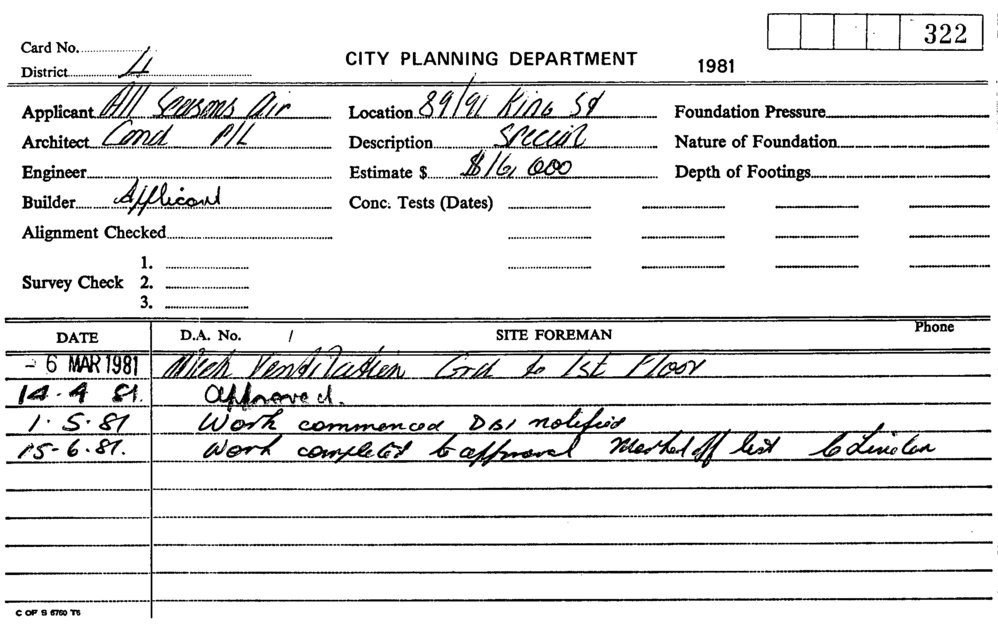 322
Card No.
CITY PLANNING DEPARTMENT 1981
District 4
Applicant All Seasons Air Location 89/91 King St Foundation Pressure
Architect Cond P/L Description Special Nature of Foundation
Engineer Estimate $ $16,000 Depth of Footings
Builder Applicant Conc. Tests (Dates)
Alignment Checked
1.
Survey Check 2.
3.
DATE D.A. No. / SITE FOREMAN Phone
- 6 MAR 1981 Mech Ventilation Grd to 1st Floor
14.4 81. Approved.
1.5.81 Work commenced DBI notified
15-6.81. Work completed to approval Marked off list
C OF S 6760 T5